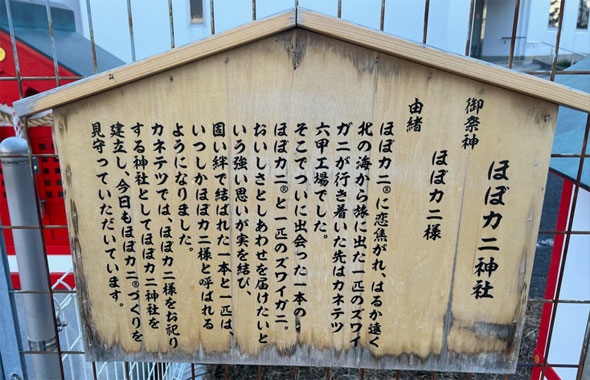 ほぼカニ神社
御祭神
ほぼカニ様
由緒
ほぼカニ®に恋焦がれ、はるか遠く
北の海から旅に出た一匹のズワイ
ガニが行き着いた先はカネテツ
六甲工場でした。
そこでついに出会った一本の
ほぼカニ®と一匹のズワイガニ。
おいしさとしあわせを届けたいと
いう強い思いが実を結び、
固い絆で結ばれた一本と一匹は、
いつしかほぼカニ様と呼ばれる
ようになりました。
カネテツでは、ほぼカニ様をお祀り
する神社としてほぼカニ神社を
建立し、今日もほぼカニ®づくりを
見守っていただいています。